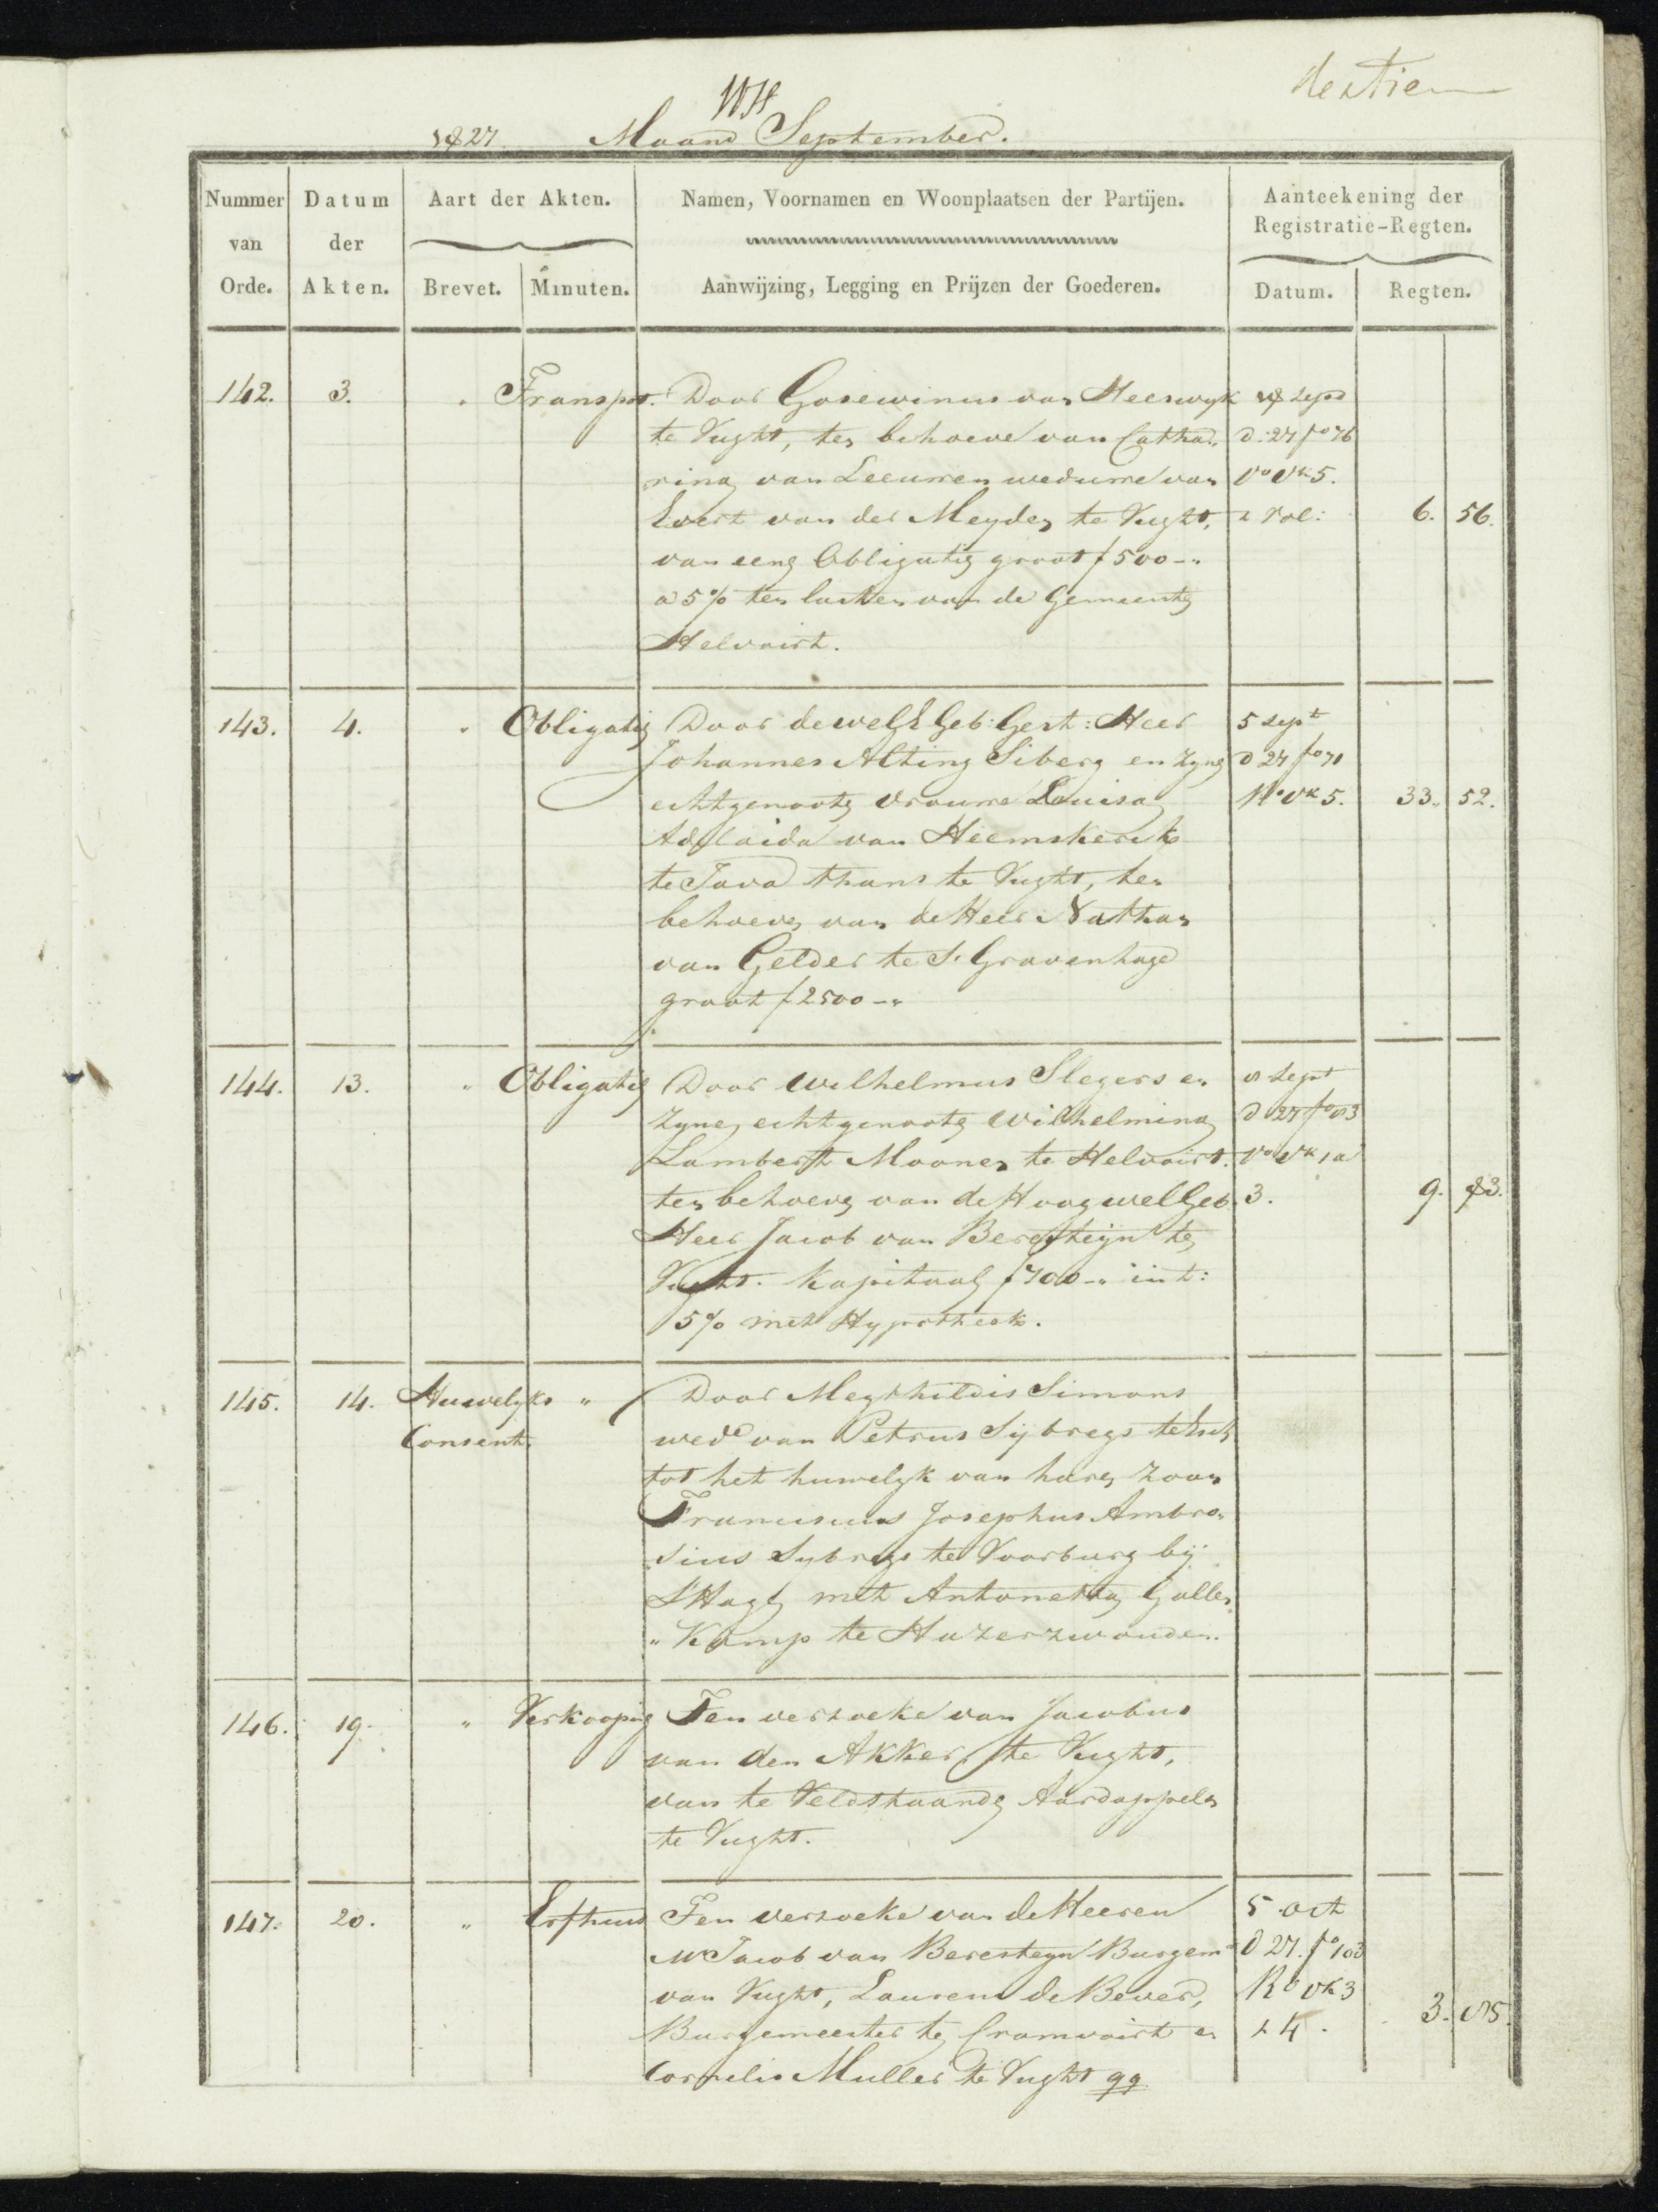 1827 Maand September.
Nummer van Orde. Datum der Akten. Aart der Akten. Brevet. Minuten. Namen, Voornamen en Woonplaatsen der Partijen. Aanwijzing, Legging en Prijzen der Goederen. Aanteekening der Registratie-Regten. Datum. Regten.
142. 3. " Transpt. Door Gosewinus van Heeswyk
te Vught, ten behoeve van Catha= D: 27 fo 76
rina van Leeuwen weduwe van Vo Vk 5.
Evert van der Meyden te Vught, 6. 56.
van eene Obligatie groot f 500-"
a 5% ten lasten van de Gemeente
Helvoirt.
143. 4. " Obligatie Door de welEGeb: Gest: Heer 5 Sept
Johannes Alting Siberg en zyne D 27 fo 71
echtgenoote vrouwe Louisa Vk 5. 33. 52.
Adelaida van Heemskerck
te Java thans te Vught, ten
behoeve van de Heer Nathan
van Gelder te S. Gravenhage
groot f 2500-"
144. 13. " Obligatie Door Wilhelmus Slegers en Sept
zyne echtgenoote Wilhelmina D 27
Lambertt Moonen te Helvoirt. Vo Vk 1 a
ten behoeve van de HoogwelGeb. 3. 9. 83.
Heer Jacob van Beresteijn te
Vught. Kapitaal f 700-" int:
5% met Hypotheek.
145. 14. Huwelyks " Door Megthildis Simons
Consent. wede van Petrus Sijbregs te Esch
tot het huwelyk van haren zoon
Franciscus Josephus Ambro=
sius Sybregs te Voorburg bij
S'Hage met Antonetta Gallen
"Kamp te Hazerzwouden.
146. 19. " Verkooping Ten verzoeke van Jacobus
van den Akker te Vught,
van te Veldstaande Aardappels
te Vught.
147. 20. " Erfhuis Ten verzoeke van de Heeren 5 Oct
Mr Jacob van Beresteyn Burgemr D 27. fo 103
van Vught, Laurens de Bever, Ro Vk 3
Burgemeester te Cromvoirt en 4. 3.
Cornelis Muller te Vught qq